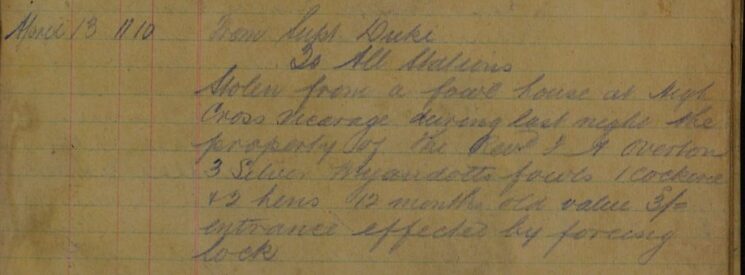 April 13 11 10 From Supt. Duke
To All Stations
Stolen from a fowl house at High
Cross Vicarage during last night the
property of the Revd F A Overton
3 Silver Wyandotte fowls 1 cockerel
+ 2 hens 12 months old value
entrance effected by forcing
lock